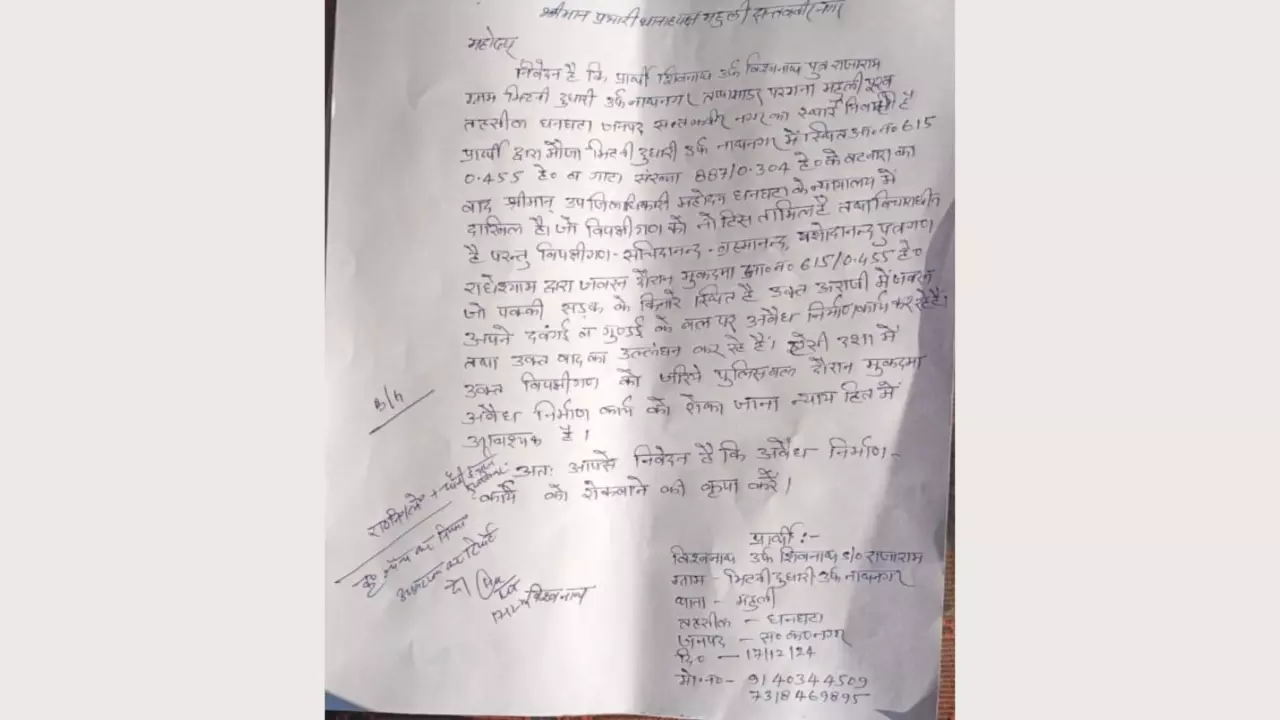 श्रीमान प्रभारी थानाध्यक्ष महुली सन्तकबीर नगर
महोदय
निवेदन है कि प्रार्थी शिवनाथ उर्फ विश्वनाथ पुत्र राजाराम
ग्राम भिटनी दुधारी उर्फ नाथनगर परगना महुली पूरब
तहसील धनघटा जनपद सन्तकबीर नगर का स्थाई निवासी है
प्रार्थी द्वारा मौजा भिटनी दुधारी उर्फ नाथनगर में स्थित आ०न० 615
0.455 हे० व गाटा संख्या 887/0.304 हे० के बटवारा का
वाद श्रीमान् उपजिलाधिकारी महोदय धनघटा के न्यायालय में
दाखिल है। जो विपक्षीगण को नोटिस तामिल है तथा विचाराधीन
है परन्तु विपक्षीगण - सचिदानन्द - ब्रह्मानन्द, यशोदानन्द पुत्रगण
राधेश्याम द्वारा जबरन दौरान मुकदमा आ०न० 615/0.455 हे०
जो पक्की सड़क के किनारे स्थित है उक्त अराजी में जबरन
अपने दबंगई व गुण्डई के बल पर अवैध निर्माण कार्य कर रहे हैं।
तथा उक्त वाद का उल्लंघन कर रहे हैं। ऐसी दशा में
उक्त विपक्षीगण को जरिये पुलिसबल दौरान मुकदमा
अवैध निर्माण कार्य को रोका जाना न्याय हित में
आवश्यक है।
अतः आपसे निवेदन है कि अवैध निर्माण -
कार्य को रोकवाने की कृपा करें।
प्रार्थी :-
विश्वनाथ उर्फ शिवनाथ S/O राजाराम
ग्राम - भिटनी दुधारी उर्फ नाथनगर
थाना - महुली
तहसील - धनघटा
जनपद - सं०क०नगर
दि० - 17/12/24
मो०न० - 9140344509
7318469895
विश्वनाथ